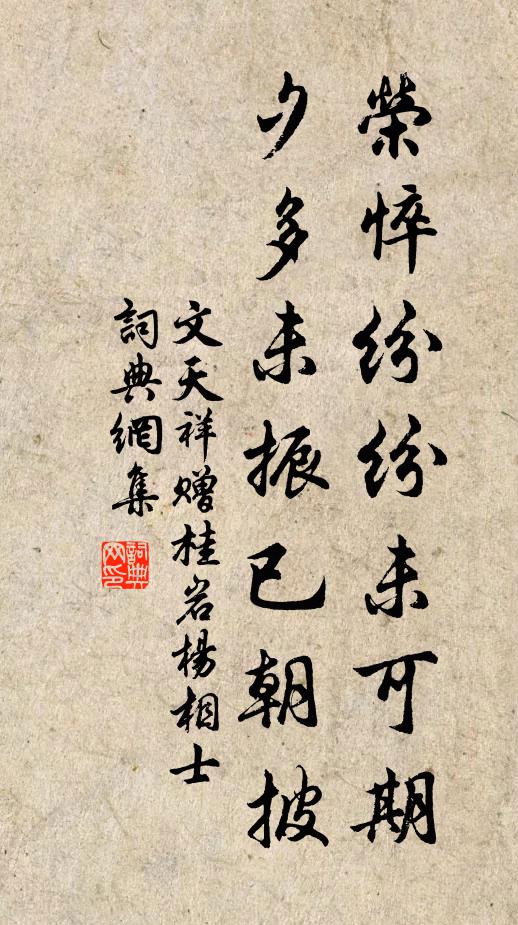 榮悴紛紛未可期
夕多未振已朝披
文天祥贈桂岩楊相士
詞典網集
詞典網印